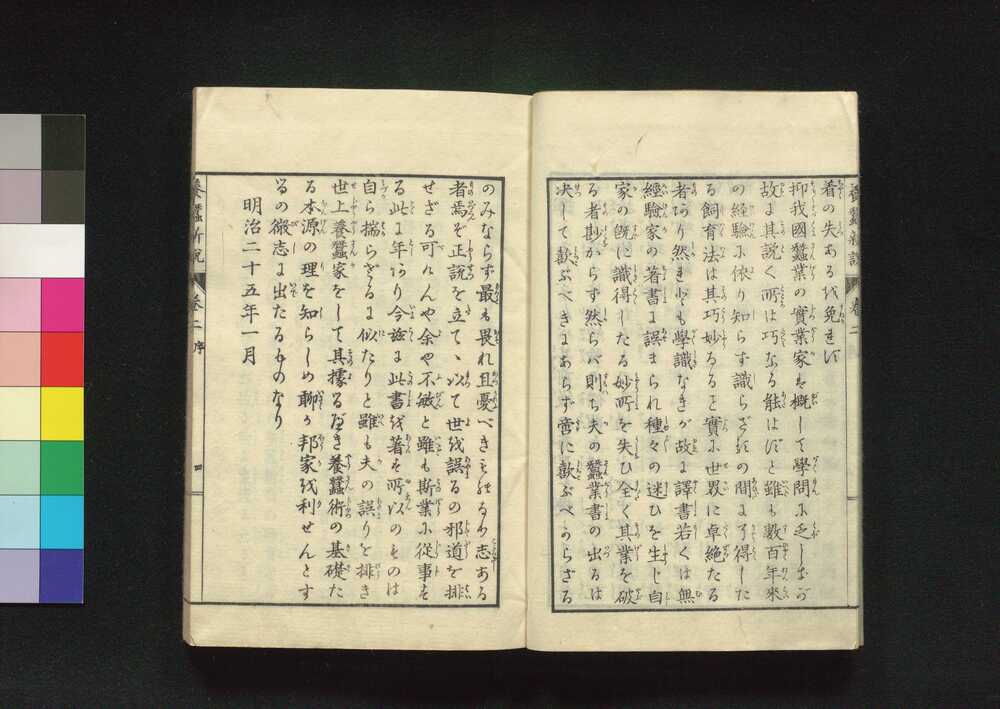 養蠶新説 巻二
着の失あるを免ま
抑我國蠶業の實業家を概して學問に乏しきが
故に其説く所は巧なる能はずと雖も數百年來
の經驗に依り知らず識らざるの間に了得した
る飼育法は其巧妙なること實に世界に卓絶たる
者あり然れども學識なきが故に譯書若くは無
經驗家の著書に誤まられ種々の迷ひを生じ自
家の既に識得したる妙所を失ひ全く其業を破
る者尠からず然らば則ち夫の蠶業書の出るは
决して歡ぶべきにあらず啻に歡ぶべからざる
のみならず最も畏れ且憂べきことなり志ある
者焉ぞ正説を立て、以て世を誤るの邪道を排
せざる可んや余や不敏と雖も斯業に從事す
る此に年あり今茲に此書を著す所以のものは
自ら揣らざるに似たりと雖も夫の誤りを排き
世上養蠶家をして其據るべき養蠶術の基礎た
る本源の理を知らしめ聊か邦家を利せんとす
るの微志に出たるものなり
明治二十五年一月
養蠶新説 巻二 序 四